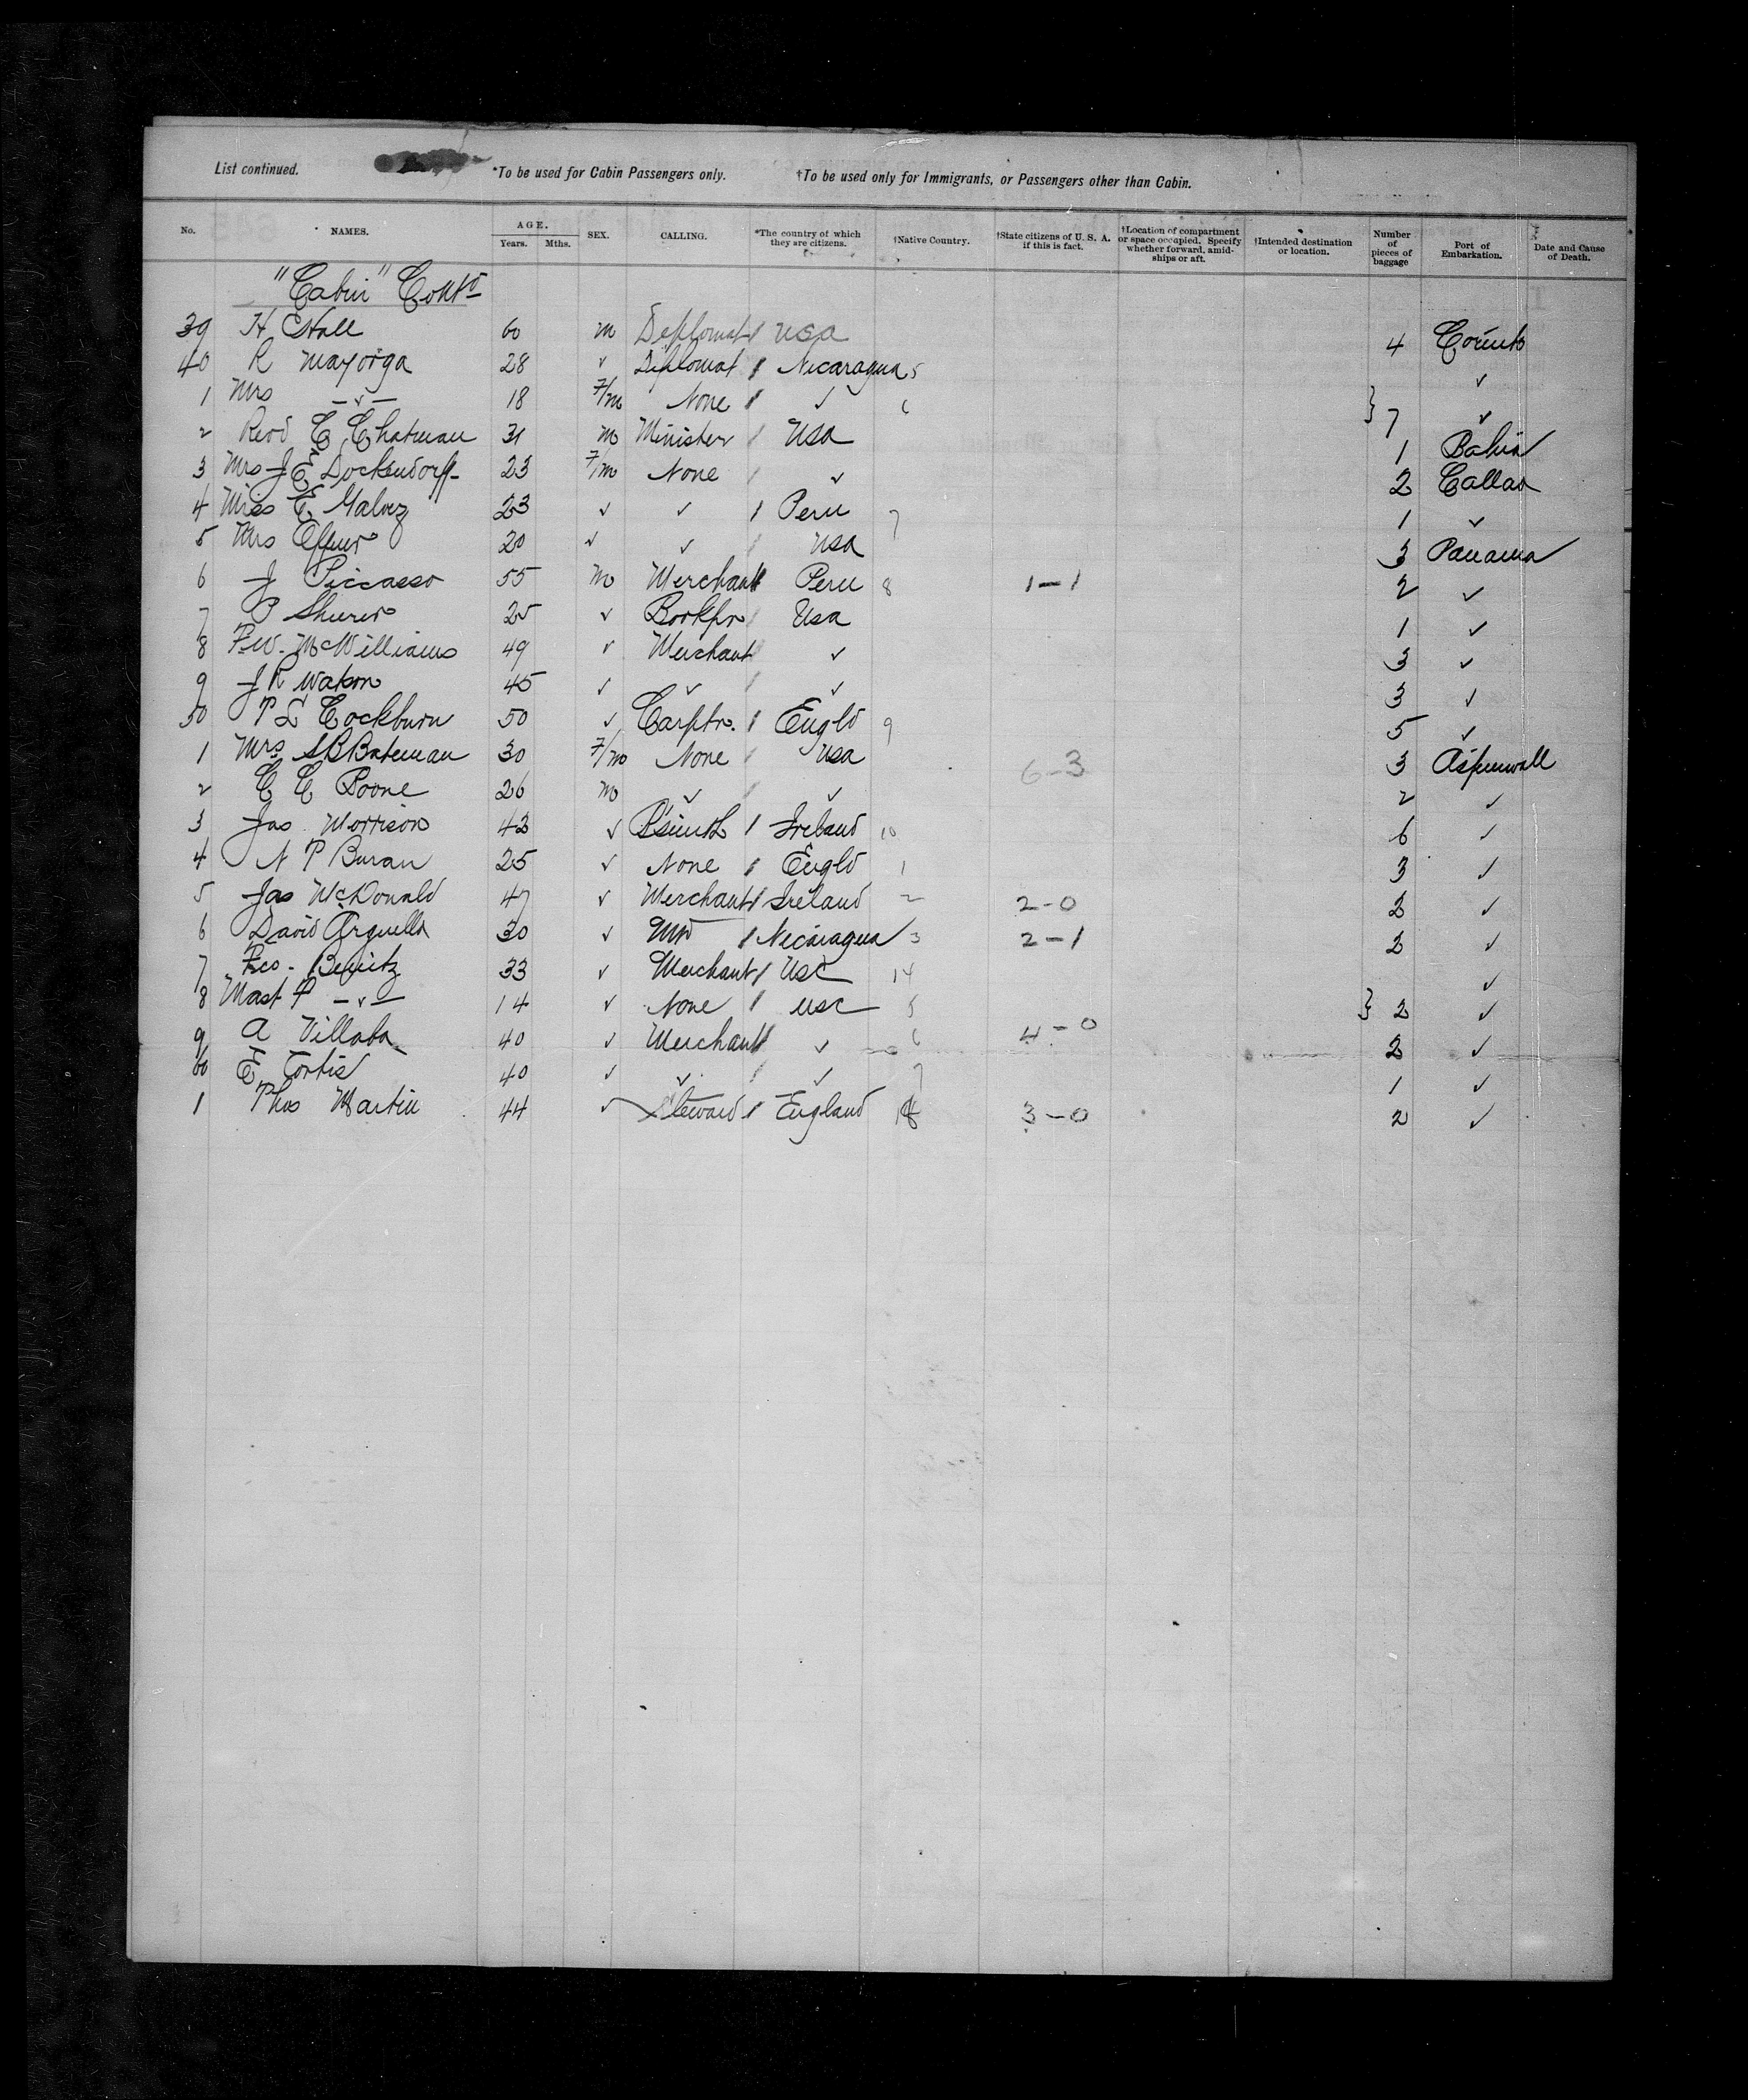 List continued. *To be used for Cabin Passengers only. †To be used only for Immigrants, or Passengers other than Cabin.
No. NAMES. AGE. Years. Mths. SEX. CALLING. *The country of which they are citizens. †Native Country. †State citizens of U. S. A. if this is fact. †Location of compartment or space occupied. Specify whether forward, amid-ships or aft. †Intended destination or location. Number of pieces of baggage Port of Embarkation. Date and Cause of Death.
"Cabin" Contd
39 H C Hall 60 m Diplomat USA 4 Corinto
40 R Mayorga 28 ✓ Diplomat Nicaragua 5 ✓
1 Mrs —✓— 18 F/m None ✓ 6 } 7 ✓
2 Revd C C Chatman 31 m Minister USA 1 Bahia
3 Mrs J E Dockendorff 23 F/m None ✓ 2 Callao
4 Miss E Galvez 23 ✓ ✓ Peru 7 1 ✓
5 Mrs 20 ✓ ✓ USA 3 Panama
6 J Piccasso 55 m Merchant Peru 8 1-1 2 ✓
7 P Shurer 25 ✓ Bookpr Usa 1 ✓
8 F.W. McWilliams 49 ✓ Merchant ✓ 3 ✓
9 J R Watson 45 ✓ ✓ ✓ 3 ✓
50 P L Cockburn 50 ✓ Carptr. Engld 9 5 ✓
1 Mrs S B Bateman 30 F/m None Usa 6-3 3 Aspinwall
2 C C Boone 26 m ✓ ✓ 2 ✓
3 Jas Morrison 43 ✓ B'smith Ireland 10 6 ✓
4 N P Buran 25 ✓ None Engld 1 3 ✓
5 Jas McDonald 47 ✓ Merchant Ireland 2 2-0 2 ✓
6 David Arguello 30 ✓ Nicaragua 3 2-1 2 ✓
7 Fco. Benitz 33 ✓ Merchant USC 14 ✓
8 Mast F —✓— 14 ✓ None USC 5 } 2 ✓
9 A Villaba 40 ✓ Merchant ✓ 6 4-0 2 ✓
60 E Tortis 40 ✓ ✓ ✓ 7 1 ✓
1 Thos Martin 44 ✓ Steward England 18 3-0 2 ✓